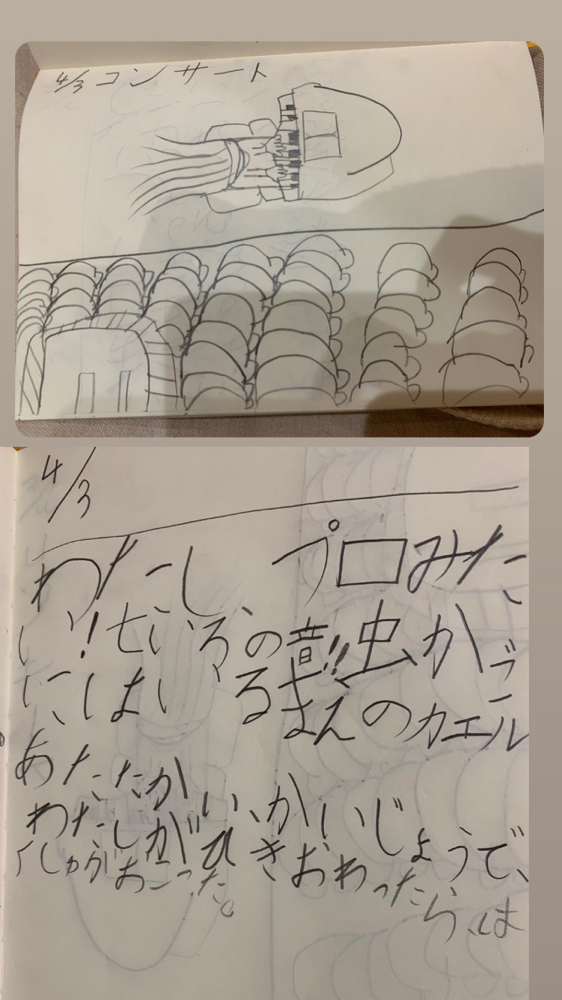 4/3 コンサート
4/3
わたし、プロみた
い!七いろの音!!虫がご
にはいるさんのカエル
あたたかい、かいじょうで、
わたしがひきおわったら、は
くしゅがおこった。